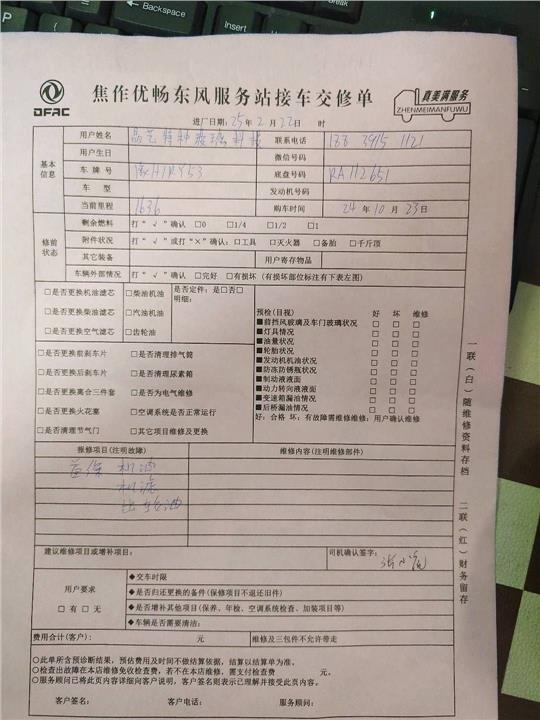 DFAC
焦作优畅东风服务站接车交修单
真美满服务
ZHENMEIMANFUWU
进厂日期: 25年 2月 22日 时
基本信息
用户姓名 晶艺特种玻璃科技 联系电话 188 3915 1121
用户生日 微信号码
车牌号 豫H1RY53 底盘号码 RA112651
车型 发动机号码
当前里程 1636 购车时间 24年 10月 23日
修前状态
剩余燃料 打“√”确认 □0 □1/4 □1/2 □1
附件状况 打“√”或打“×”确认: □工具 □灭火器 □备胎 □千斤顶
其它装备 用户寄存物品
车辆外部情况 打“√”确认 □完好 □有损坏 (有损坏部位标注有下表左图)
□是否更换机油滤芯 □柴油机油 是否定件: 是□否□
明细:
□是否更换柴油滤芯 □汽油机油
□是否更换空气滤芯 □齿轮油
□是否更换前刹车片 □是否清理排气筒
□是否更换后刹车片 □是否清理尿素箱
□是否更换离合三件套 □是否为电气维修
□是否更换火花塞 □空调系统是否正常运行
□是否清理节气门 □其它项目维修及更换
预检(目视) 好 坏 维修
■前挡风玻璃及车门玻璃状况 □ □ □
■灯具情况 □ □ □
■油量状况 □ □ □
■轮胎状况 □ □ □
■发动机机油状况 □ □ □
■防冻防锈瓶状况 □ □ □
■制动液液面 □ □ □
■动力转向液液面 □ □ □
■变速箱漏油情况 □ □ □
■后桥漏油情况 □ □ □
好: 合格 坏: 有故障需维修维修: 用户确认维修
报修项目(注明故障) 维修内容(注明维修部件)
首保 机油
机滤
齿轮油
建议维修项目或增补项目: 司机确认签字:
用户要求
□有 □无
◆交车时限
◆是否归还更换的备件(保修项目不退还旧件)
◆是否增补其他项目(保养、年检、空调系统检查、加装项目等)
◆车辆是否需要清洁:
费用合计(客户): 元 维修及三包件不允许带走
○此单所含预诊断结果, 预估费用及时间不做结算依据, 结算以结算单为准。
○检查出故障在本店维修免收检查费, 若不在本店维修, 需支付检查费 元。
○服务顾问已将此页内容详细向客户说明, 客户签名则表示已理解并接受此页内容。
客户签名: 客户电话: 服务顾问:
一联(白)随维修资料存档
二联(红)财务留存